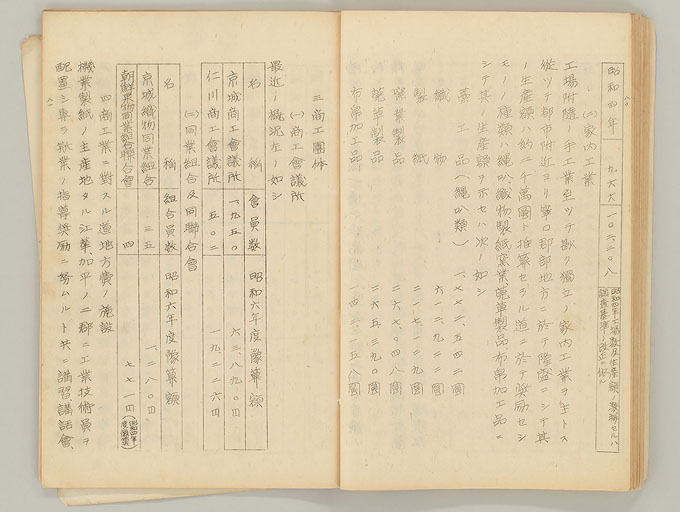 昭和四年 九六六 一〇二三〇八
(二)家内工業
工場附随ノ手工業至ツテ尠ク獨立ノ家内工業ヲ主トス
從ツテ都市附近ヨリ寧ロ郡部地方ニ於テ隆盛ニシテ其
ノ生産額ハ約二千萬圓ト推算セラル道ニ於テ奨励セシ
モノノ種類ハ縄叺織物製紙窯業莞草製品布帛加工品ニ
シテ其ノ生産額ヲ示セハ次ノ如シ
藁工品(縄叺類) 一、七七二、五四二圓
織物 六一二、二九〇圓
製紙 二一七、一二〇圓
窯業製品 二六七、〇四八圓
莞草製品 二六五、三九〇圓
布帛加工品 一四二、一五八圓
三商工團体
(一)商工會議所
最近ノ概況左ノ如シ
名稱 會員數 昭和六年度豫算額
京城商工會議所 一、九五〇 六三、八九〇円
仁川商工會議所 五〇二 一九、二二六円
(二)同業組合及同聯合會
名稱 組合員數 昭和六年度豫算額
京城織物同業組合 三五 一、二八〇円
朝鮮果物同業組合聯合會 四 七七一円(昭和四年度豫算)
四商工業ニ對スル道地方費ノ施設
機業製紙ノ生産地タル江華、加平ノ二郡ニ工業技術員ヲ
配置シ専ラ斯業ノ指導奨励ニ努ムルト共ニ講習講話會、